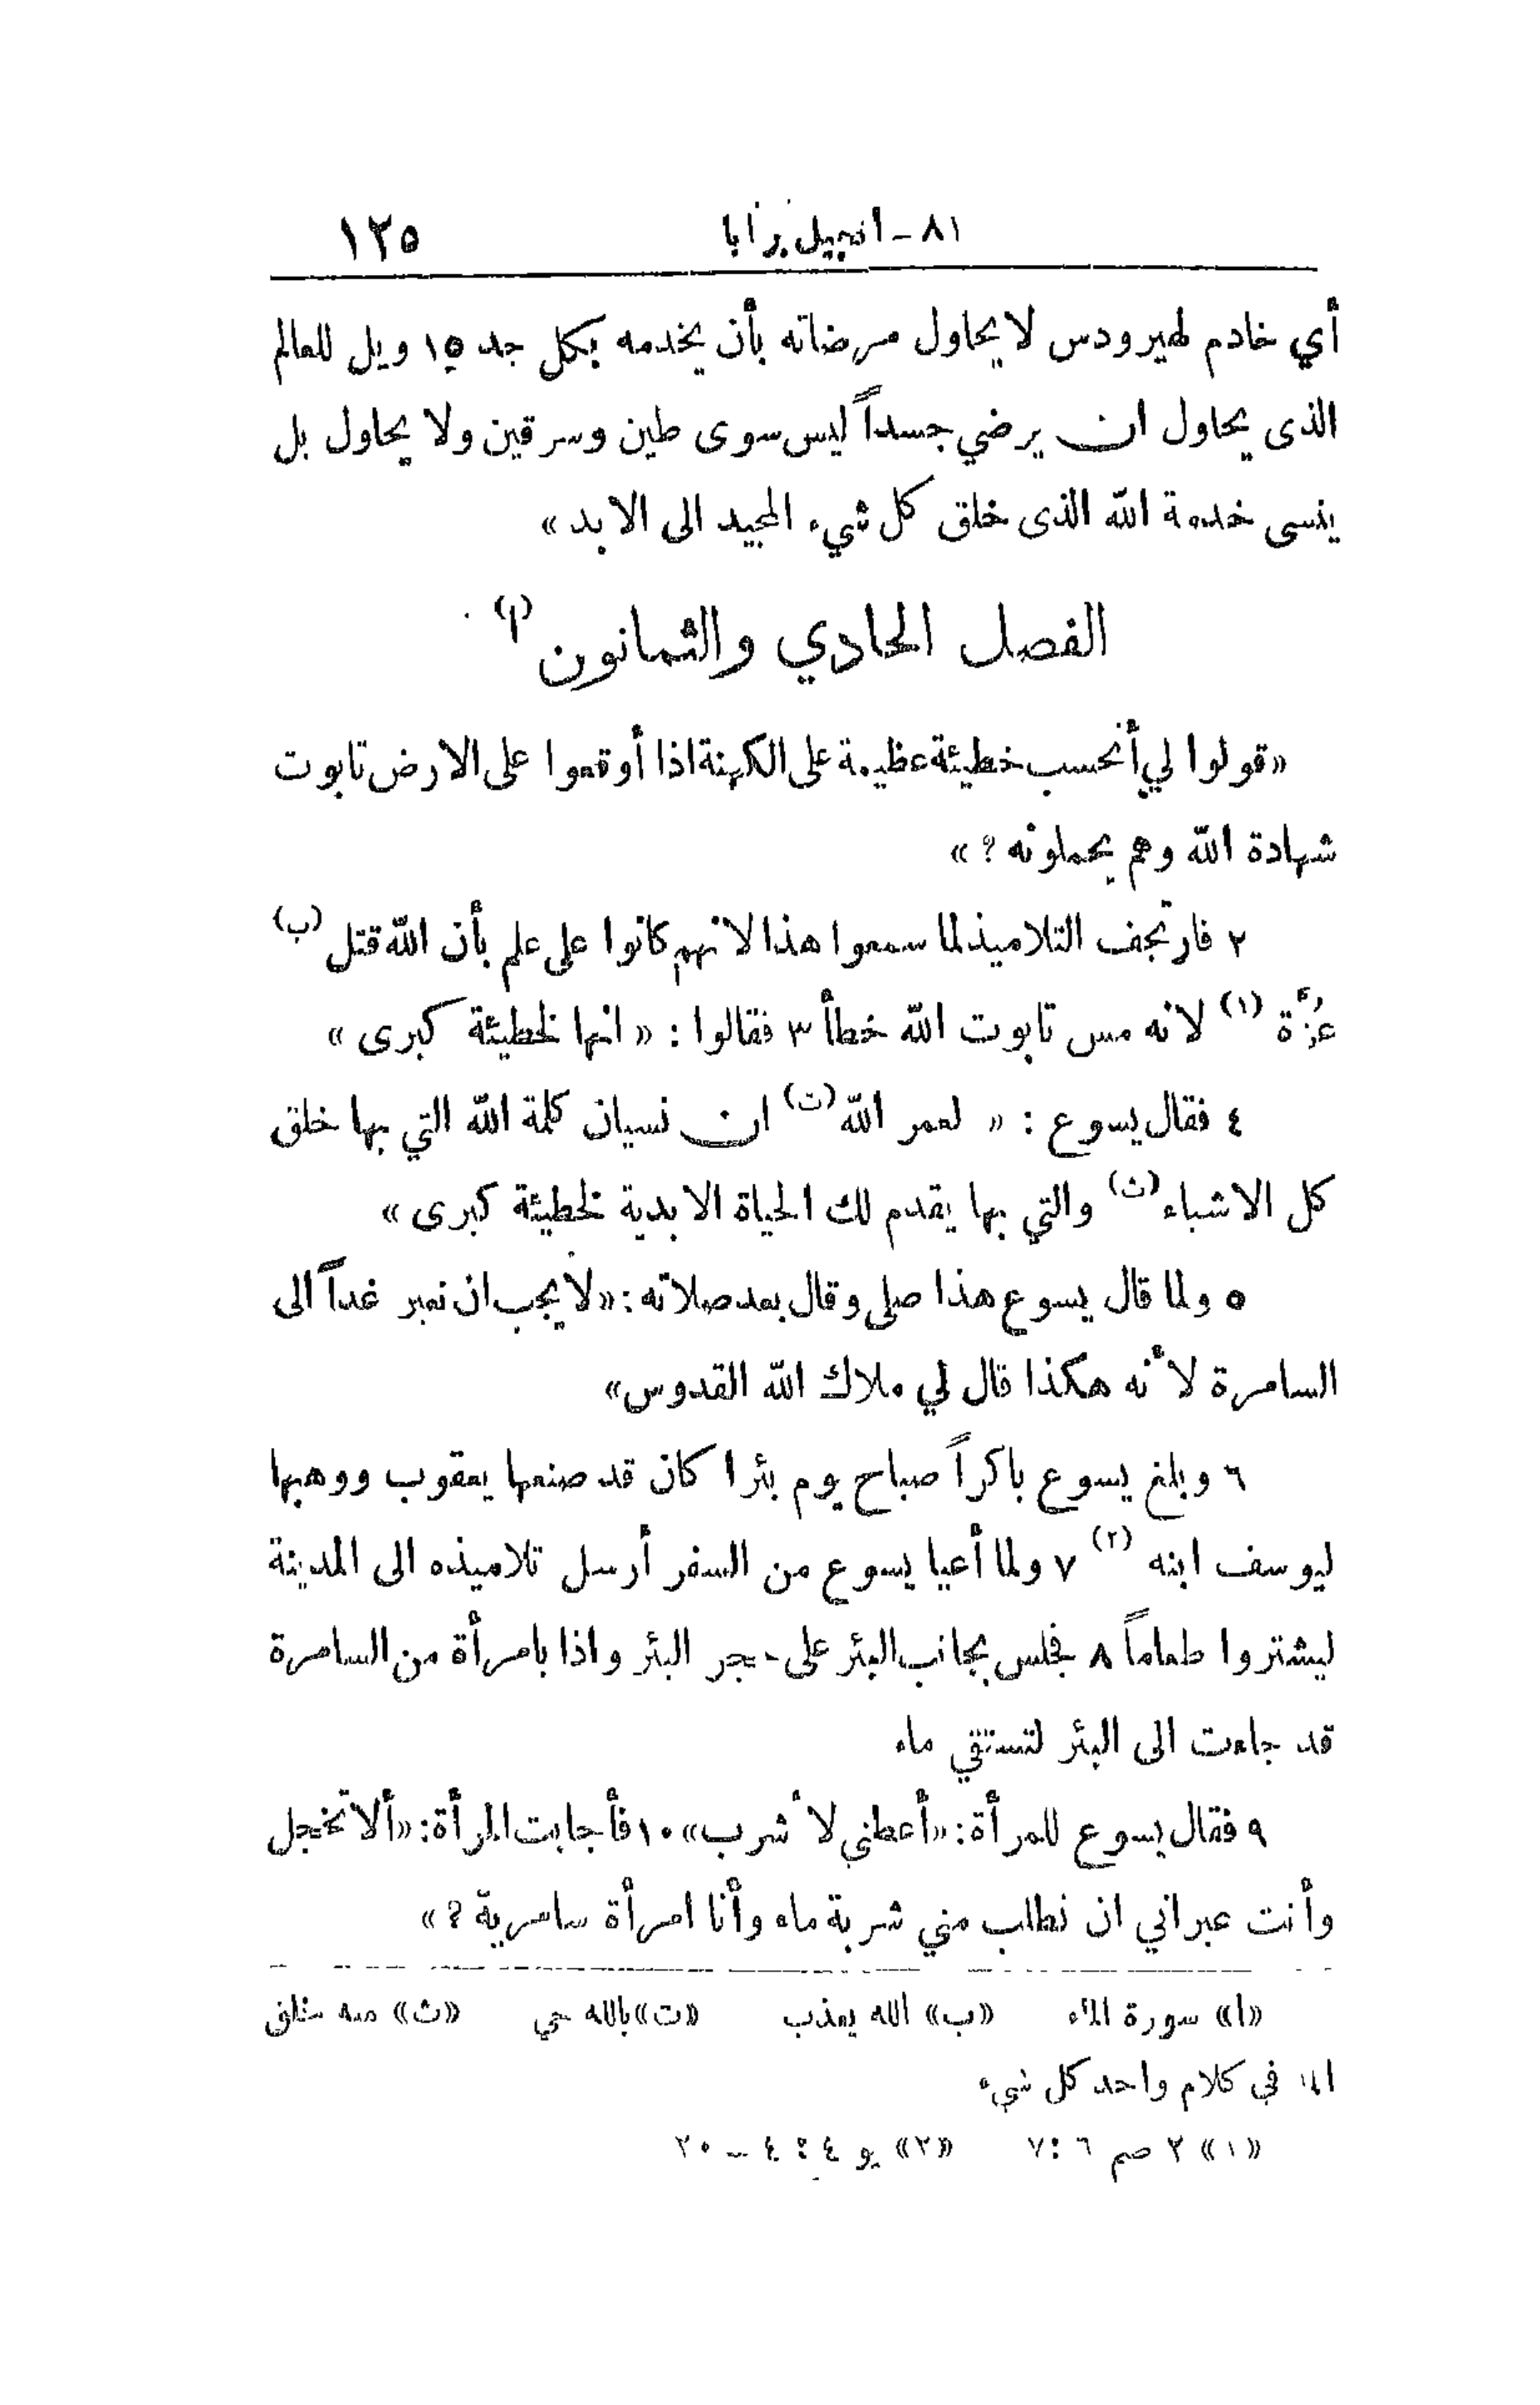 ٨١ - انجيل برنابا ١٢٥
أي خادم لهيرودس لا يحاول مرضاته بأن يخدمه بكل جد ١٥ ويل للعالم
الذى يحاول ان يرضي جسداً ليس سوى طين وسرقين ولا يحاول بل
ينسى خدمة الله الذى خلق كل شيء المجيد الى الابد »
الفصل الحادي والثمانون (ا)
« قولوا لي أتحسب خطيئة عظيمة على الكهنة اذا أوقعوا على الارض تابوت
شهادة الله وهم يحملونه ؟ »
٢ فارتجف التلاميذ لما سمعوا هذا لانهم كانوا على علم بأن الله قتل (ب)
عزَّة (١) لانه مس تابوت الله خطأ ٣ فقالوا : « انها لخطيئة كبرى »
٤ فقال يسوع : « لعمر الله (ت) ان نسيان كلمة الله التي بها خلق
كل الاشياء (ث) والتي بها يقدم لك الحياة الابدية لخطيئة كبرى »
٥ ولما قال يسوع هذا صلى وقال بعد صلاته : « لا يجب ان نعبر غداً الى
السامرة لأنه هكذا قال لي ملاك الله القدوس »
٦ وبلغ يسوع باكراً صباح يوم بئرا كان قد صنعها يعقوب ووهبها
ليوسف ابنه (٢) ٧ ولما أعيا يسوع من السفر أرسل تلاميذه الى المدينة
ليشتروا طعاماً ٨ فجلس بجانب البئر على حجر البئر واذا بامرأة من السامرة
قد جاءت الى البئر لتستقي ماء
٩ فقال يسوع للمرأة : « أعطني لأشرب » ١٠ فأجابت المرأة : « ألا تخجل
وأنت عبراني ان تطلب مني شربة ماء وأنا امرأة سامرية ؟ »
« ا » سورة الماء « ب » الله يعذب « ت » بالله حي « ث » منه خلق
الله في كلام واحد كل شيء
« ١ » ٢ صم ٦ : ٧ « ٢ » يو ٤ : ٤ - ٢٠